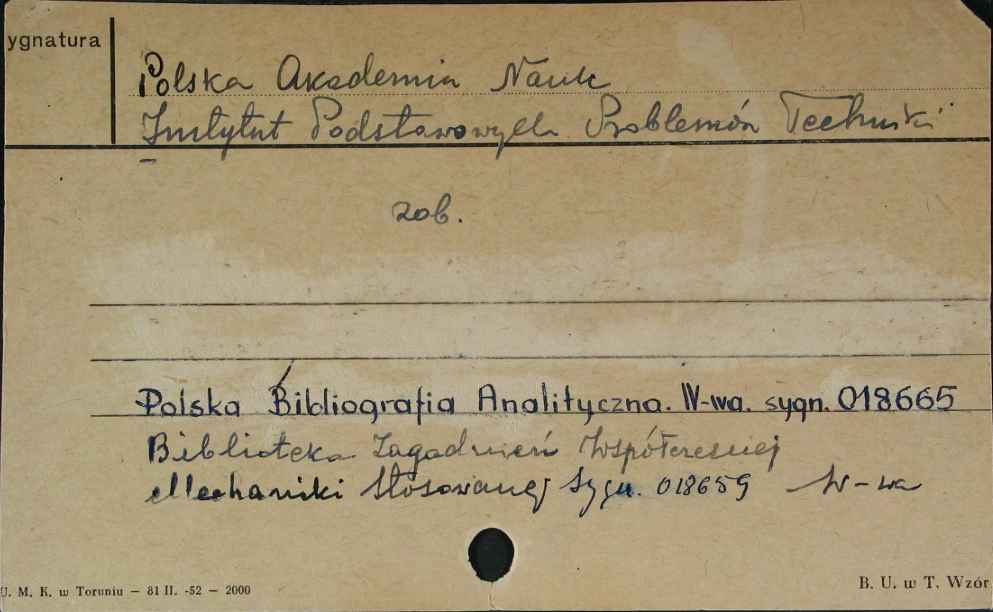 ygnatura
Polska Akademia Nauk
Instytut Podstawowych Problemów Techniki
zob.
Polska Bibliografia Analityczna. W-wa. sygn. 018665
Biblioteka Zagadnień Współczesnej
Mechaniki Stosowanej Sygn. 018659 W-wa
U. M. K. w Toruniu — 81 II. -52 — 2000
B. U. w T. Wzór